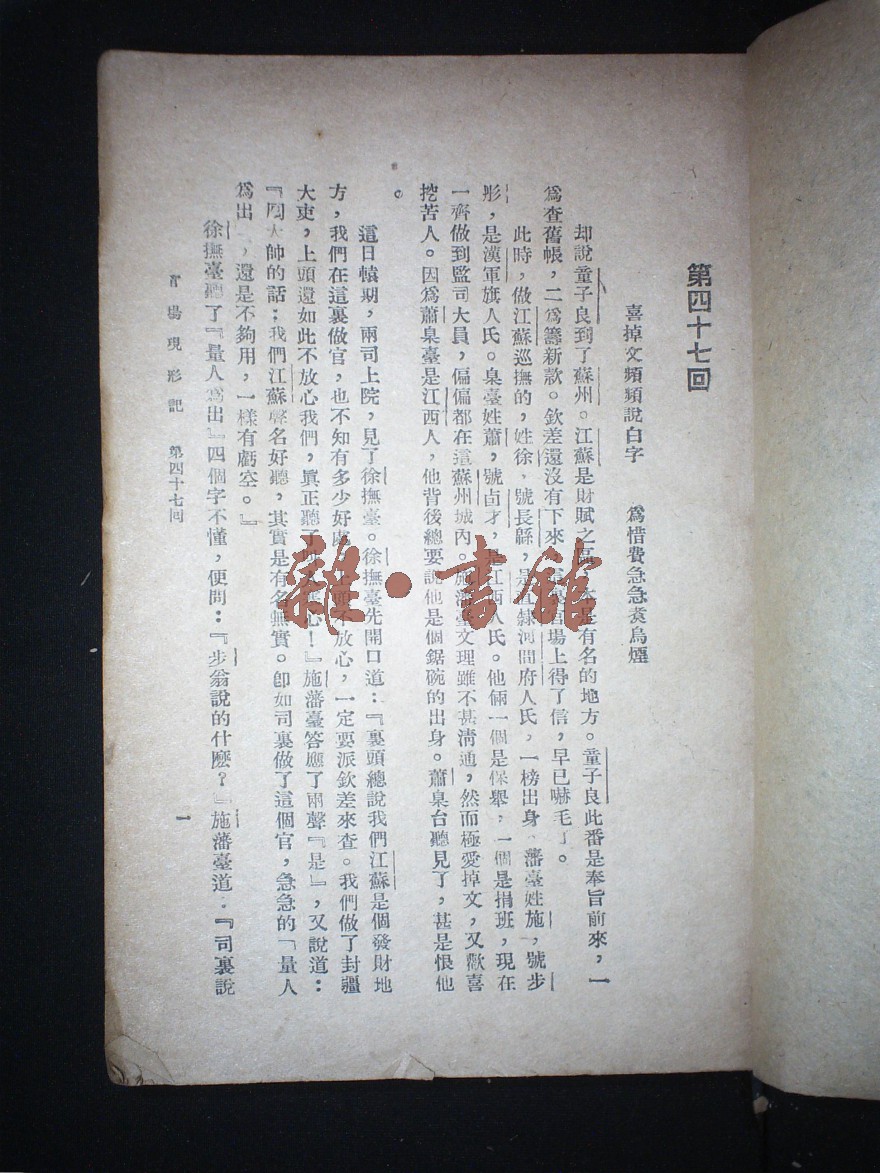 第四十七回
喜掉文頻頻說白字　爲惜費急急煑烏煙
却說童子良到了蘇州。江蘇是財賦之區，本是有名的地方。童子良此番是奉旨前來，一
爲查舊帳，二爲籌新款。欽差還沒有下來，官場上得了信，早已嚇毛了。
此時，做江蘇巡撫的，姓徐，號長緜，是直隸河間府人氏，一榜出身。藩臺姓施，號步
彤，是漢軍旗人氏。臬臺姓蕭，號卣才，是江西人氏。他倆一個是保舉，一個是捐班，現在
一齊做到監司大員，偏偏都在這蘇州城內。施藩臺文理雖不甚清通，然而極愛掉文，又歡喜
挖苦人。因爲蕭臬臺是江西人，他背後總要說他是個鋸碗的出身。蕭臬台聽見了，甚是恨他
。
這日轅期，兩司上院，見了徐撫臺。徐撫臺先開口道：『裏頭總說我們江蘇是個發財地
方，我們在這裏做官，也不知有多少好處，上頭不放心，一定要派欽差來查。我們做了封疆
大吏，上頭還如此不放心我們，眞正聽了
心！』施藩臺答應了兩聲『是』，又說道：
『周大帥的話：我們江蘇聲名好聽，其實是有名無實。卽如司裏做了這個官，急急的「量人
爲出」，還是不夠用，一樣有虧空。』
徐撫臺聽了『量人爲出』四個字不懂，便問：『步翁說的什麼？』施藩臺道：『司裏說
官場現形記　第四十七回
一
雜·書館